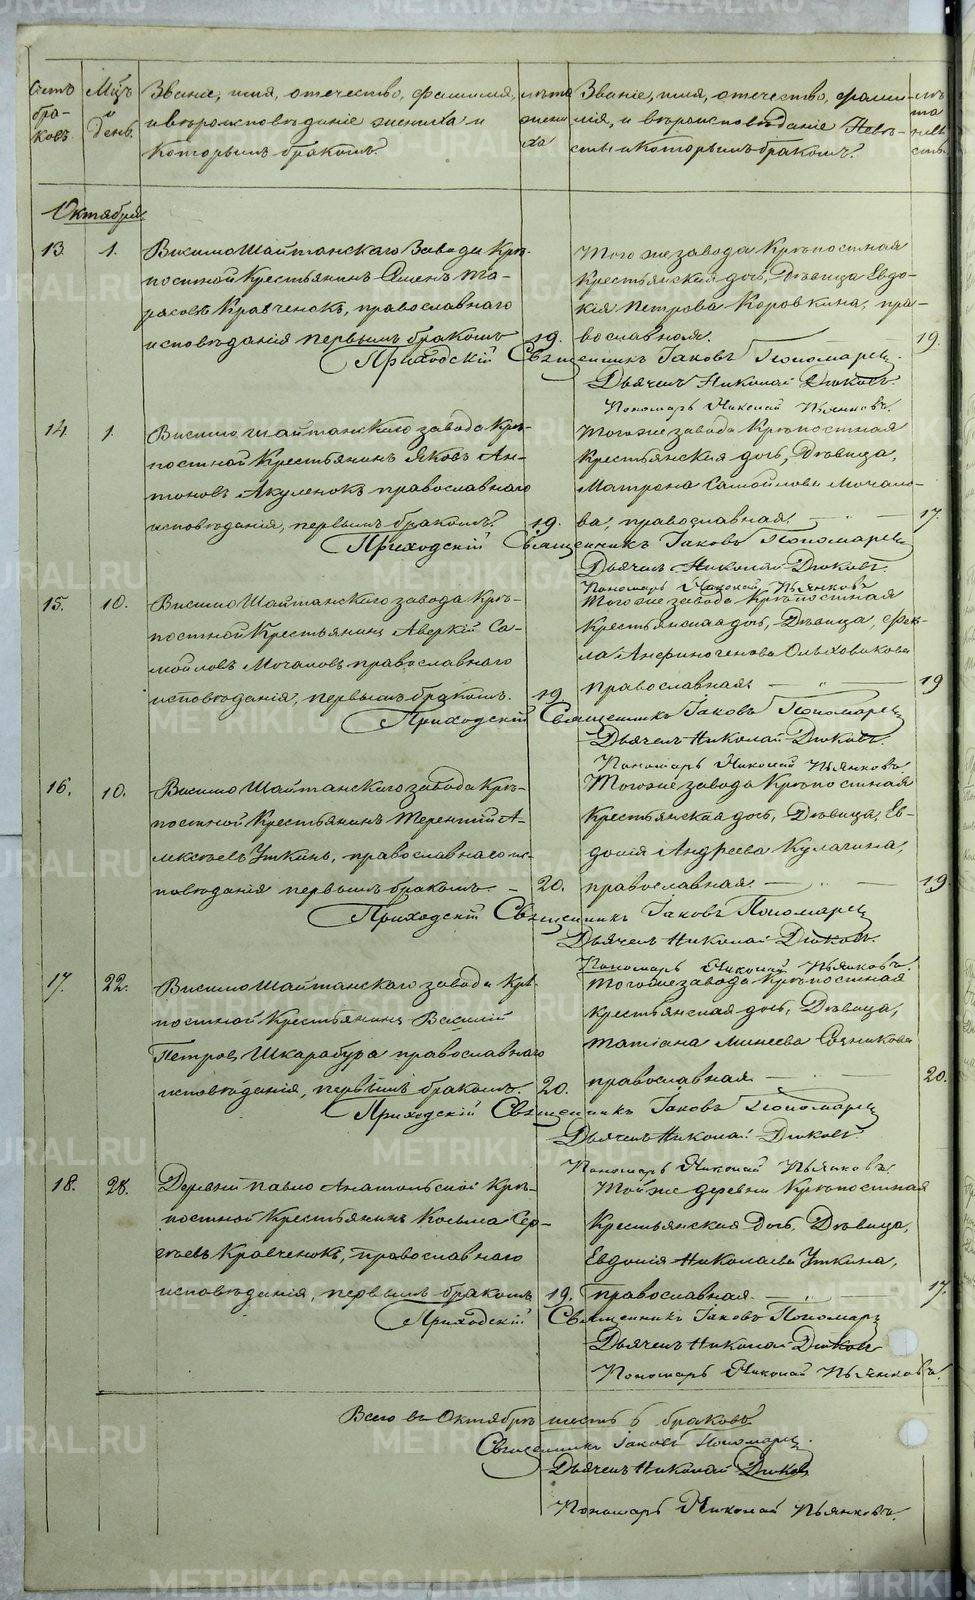 Счетъ браковъ
Мцъ и день.
Званіе, имя, отечество, фамилія,
и вѣроисповѣданіе жениха и
которымъ бракомъ?
лѣта жениха
Званіе, имя, отечество, фами-
лія, и вѣроисповѣданіе Невѣ-
сты и которымъ бракомъ?
лѣта невѣсты
Октября
13. 1. Висимо Шайтанскаго Завода Крѣ-
постной Крестьянинъ Семенъ Та-
расовъ Кравченокъ, православнаго
исповѣданія первымъ бракомъ 19.
Того же завода Крѣпостная
Крестьянская дочь, Дѣвица Евдо-
кія Петрова Коровкина, пра-
вославная. 19.
Приходскій Священникъ Іаковъ Пономаревъ.
Дьячекъ Николай Дюковъ.
Пономарь Николай Пьянковъ.
14. 1. Висимо Шайтанскаго завода Крѣ-
постной Крестьянинъ Яковъ Ан-
тоновъ Акуленокъ православнаго
исповѣданія, первымъ бракомъ? 19.
Того же завода Крѣпостная
Крестьянская дочь, Дѣвица,
Матрона Самойлова Мочало-
ва, православная. 17.
Приходскій Священникъ Іаковъ Пономаревъ
Дьячекъ Николай Дюковъ.
Пономарь Николай Пьянковъ
15. 10. Висимо Шайтанскаго завода Крѣ-
постной Крестьянинъ Аверкій Са-
мойловъ Мочаловъ, православнаго
исповѣданія, первымъ бракомъ. 19
Того же завода Крѣпостная
Крестьянская дочь, Дѣвица, Фек-
ла Анфиногенова Ольховикова
православная 19
Приходскій Священникъ Іаковъ Пономаревъ
Дьячекъ Николай Дюковъ.
Пономарь Николай Пьянковъ
16. 10. Висимо Шайтанскаго завода Крѣ-
постной Крестьянинъ Терентій А-
лексѣевъ Уткинъ, православнаго ис-
повѣданія первымъ бракомъ. 20.
Того же завода Крѣпостная
Крестьянская дочь, Дѣвица, Ев-
докія Андреева Кулагина,
православная. 19.
Приходскій Священникъ Іаковъ Пономаревъ
Дьячекъ Николай Дюковъ.
Пономарь Николай Пьянковъ.
17. 22. Висимо Шайтанскаго завода Крѣ-
постной Крестьянинъ Василій
Петровъ Шкарабура православнаго
исповѣданія, первымъ бракомъ 20.
Того же завода Крѣпостная
крестьянская дочь, Дѣвица,
Татіана Минеева
православная. 20.
Приходскій Священникъ Іаковъ Пономаревъ
Дьячекъ Николай Дюковъ.
Пономарь Николай Пьянковъ.
18. 28. Деревни Павло Анатольской Крѣ-
постной Крестьянинъ Косьма Сер-
гѣевъ Кравченокъ, православнаго
исповѣданія, первымъ бракомъ 19.
Той же деревни Крѣпостная
Крестьянская Дочь, Дѣвица,
Евдокія Николаева Уткина,
православная. 17.
Приходскій Священникъ Іаковъ Пономаревъ
Дьячекъ Николай Дюковъ
Пономарь Николай Пьянковъ.
Всего въ Октябрѣ шесть 6 браковъ
Священникъ Іаковъ Пономаревъ.
Дьячекъ Николай Дюковъ
Пономарь Николай Пьянковъ.
METRIKI.GASO-URAL.RU